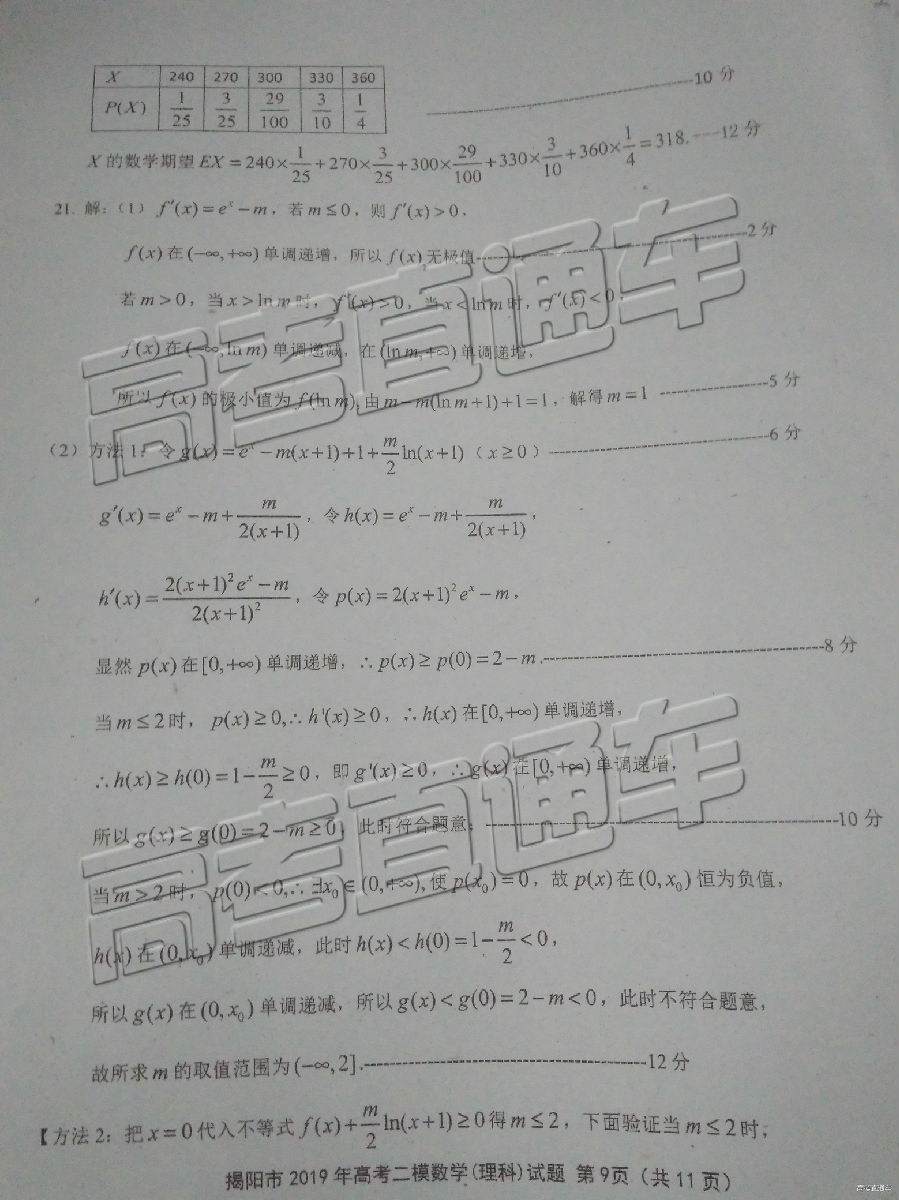 X 240 270 300 330 360
P(X) 1/25 3/25 29/100 3/10 1/4 10 分
X 的数学期望 EX = 240×1/25+270×3/25+300×29/100+330×3/10+360×1/4=318. 12 分
21. 解：（1）f′(x)=e^x−m，若 m≤0，则 f′(x)>0，
f(x) 在 (−∞,+∞) 单调递增，所以 f(x) 无极值 2 分
若 m>0，当 x>ln m 时，f′(x)>0，当 x<ln m 时，f′(x)<0，
f(x) 在 (−∞,ln m) 单调递减，在 (ln m,+∞) 单调递增，
所以 f(x) 的极小值为 f(ln m), 由 m−m(ln m+1)+1=1，解得 m=1 5 分
（2）方法 1：令 g(x)=e^x−m(x+1)+1+m/2 ln(x+1)（x≥0） 6 分
g′(x)=e^x−m+m/2(x+1)，令 h(x)=e^x−m+m/2(x+1)，
h′(x)=2(x+1)²e^x−m/2(x+1)²，令 p(x)=2(x+1)²e^x−m，
显然 p(x) 在 [0,+∞) 单调递增，∴p(x)≥p(0)=2−m. 8 分
当 m≤2 时，p(x)≥0,∴h'(x)≥0，∴h(x) 在 [0,+∞) 单调递增，
∴h(x)≥h(0)=1−m/2≥0，即 g'(x)≥0，∴g(x) 在 [0,+∞) 单调递增，
所以 g(x)≥g(0)=2−m≥0，此时符合题意； 10 分
当 m>2 时，p(0)<0,∴∃x₀∈(0,+∞), 使 p(x₀)=0，故 p(x) 在 (0,x₀) 恒为负值，
h(x) 在 (0,x₀) 单调递减，此时 h(x)<h(0)=1−m/2<0，
所以 g(x) 在 (0,x₀) 单调递减，所以 g(x)<g(0)=2−m<0，此时不符合题意，
故所求 m 的取值范围为 (−∞,2]. 12 分
【方法 2：把 x=0 代入不等式 f(x)+m/2 ln(x+1)≥0 得 m≤2，下面验证当 m≤2 时，
揭阳市 2019 年高考二模数学(理科)试题 第 9页（共 11 页）
高考直通车
高考直通车
高考直通车